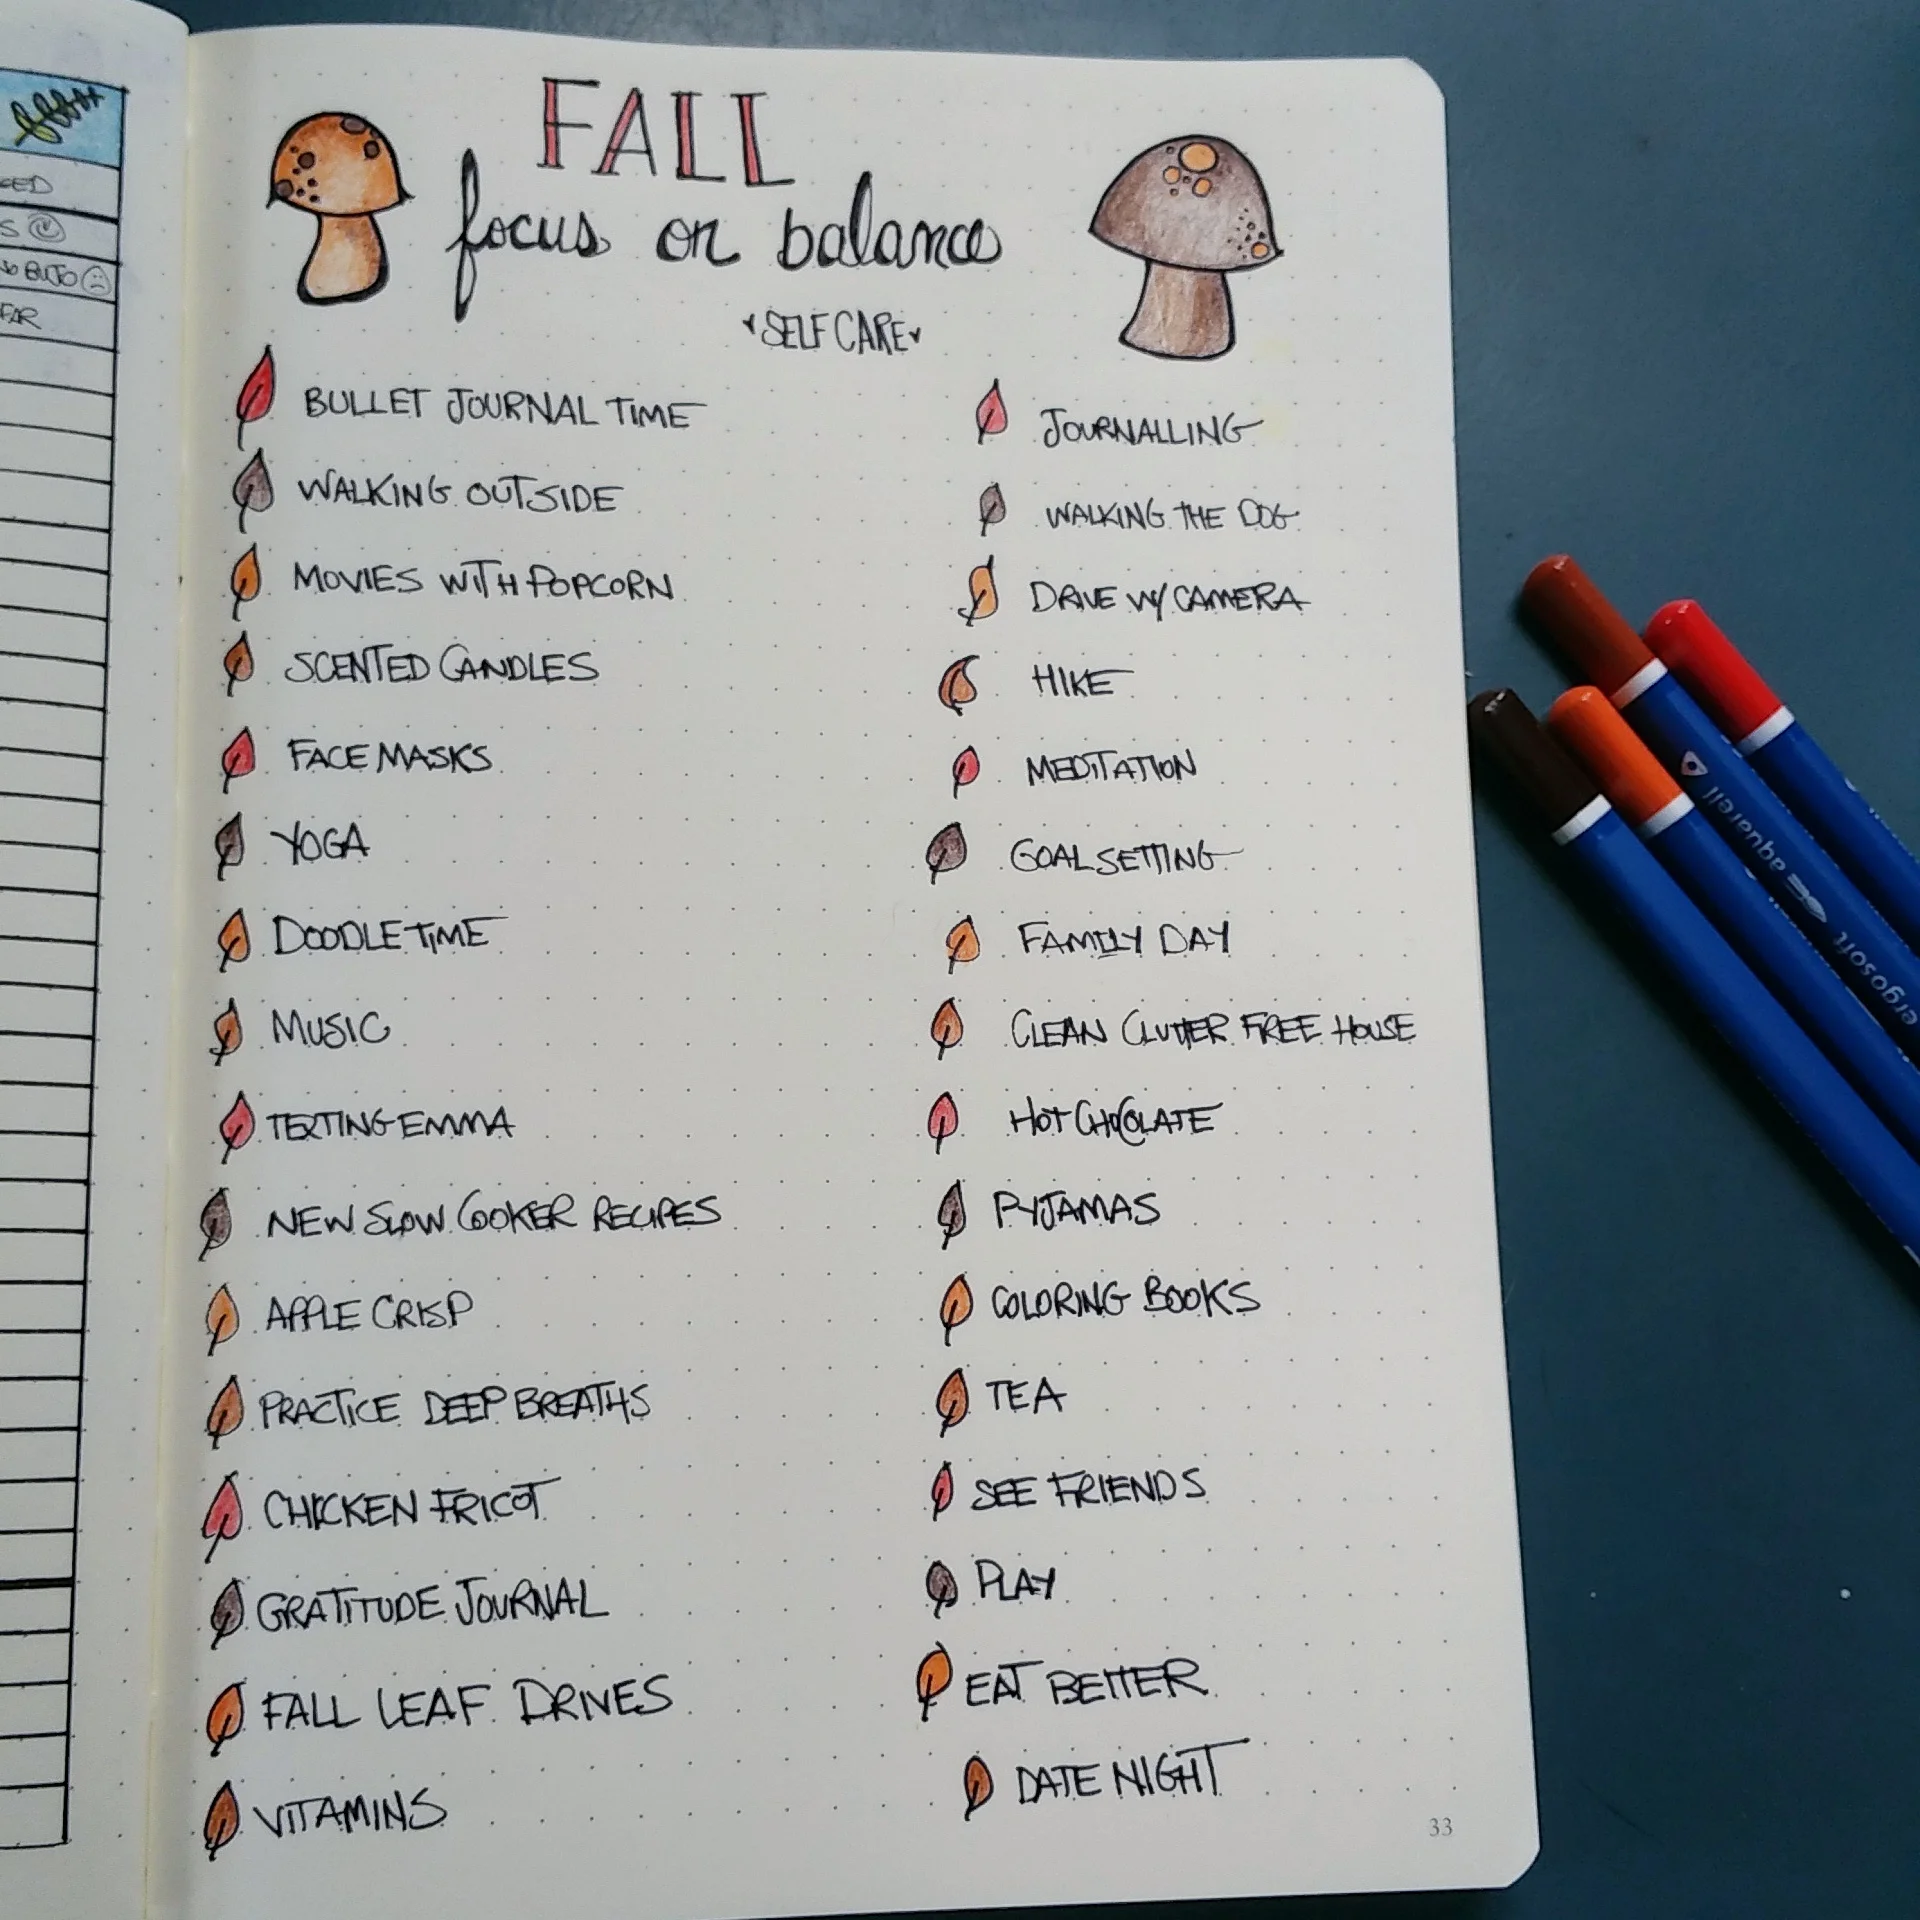 EED
S
BUJO
FAR
FALL
focus on balance
SELF CARE
BULLET JOURNAL TIME
WALKING OUTSIDE
MOVIES WITH POPCORN
SCENTED CANDLES
FACE MASKS
YOGA
DOODLE TIME
MUSIC
TEXTING EMMA
NEW SLOW COOKER RECIPES
APPLE CRISP
PRACTICE DEEP BREATHS
CHICKEN FRICOT
GRATITUDE JOURNAL
FALL LEAF DRIVES
VITAMINS
JOURNALLING
WALKING THE DOG
DRIVE W/ CAMERA
HIKE
MEDITATION
GOAL SETTING
FAMILY DAY
CLEAN CLUTTER FREE HOUSE
HOT CHOCOLATE
PYJAMAS
COLORING BOOKS
TEA
SEE FRIENDS
PLAY
EAT BETTER
DATE NIGHT
33
ergosoft aquarell